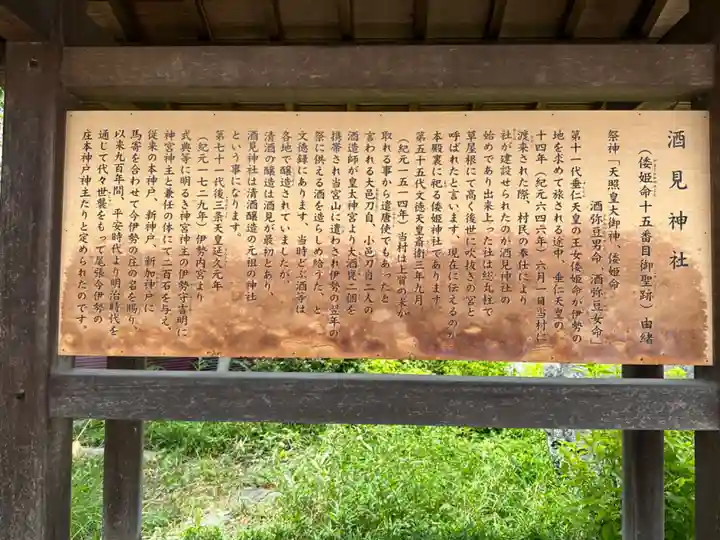 酒見神社
(倭姫命十五番目御聖跡)由緒
祭神「天照皇大御神、倭姫命
酒弥豆男命 酒弥豆女命」
第十一代垂仁天皇の王女倭姫命が伊勢の
地を求めて旅される途中、垂仁天皇の
十四年(紀元六四六年)六月一日当村に
渡来された際、村民の奉仕により
社が建設せられたのが酒見神社の
始めであり出来上った社は総丸柱で
草屋根にて高く後世に吹抜きの宮と
呼ばれたと言います。現在に伝えるのが
本殿裏に祀る倭姫神社であります。
第五十五代文徳天皇斎衡三年九月
(紀元一五一四年)当村は上質の米が
取れる事から遣唐使でもあったと
言われる大邑刀自、小邑刀自二人の
酒造師が皇太神宮より大酒甕二個を
携帯され当宮山に遣わされ伊勢の翌年の
祭に供える酒を造らしめ給うた、と
文徳録にあります。当時どぶ酒等は
各地で醸造されていましたが、
清酒の醸造は酒見が最初とあり、
酒見神社は清酒醸造の元祖の神社
という事になります。
第七十一代後三条天皇延久元年
(紀元一七二九年)伊勢内宮より
式典等に明るき神宮神主の伊勢守吉明に
神宮神主と兼任の体にて二百石を与え、
従来の本神戸、新神戸、新加神戸に
馬寄を合わせて今伊勢の庄の名を賜り、
以来九百年間、平安時代より明治時代を
通じて代々世襲をもって尾張今伊勢の
庄本神戸神主たりと定められたのです。